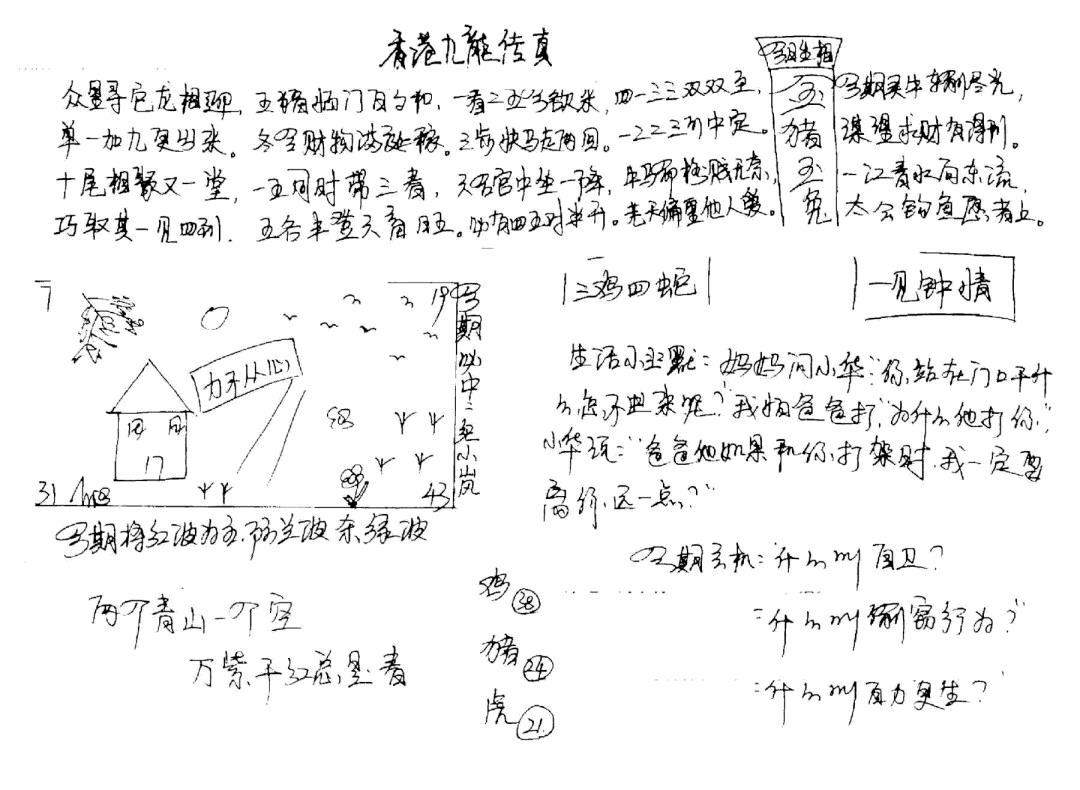 香港九龙传真
众里寻它龙相聊，五猪临门百句和，一看二五今欲来，四一三三双双至，
单一加九更出来。冬令财物满。三步快马走两回。一二二三列中定。
十尾相聚又一堂，一五同时带三者，天否官中坐一降，牛马
巧取其一见四到。五谷丰登天有日五。必有四五对半开。先天偏里他人爱。
今日生相
玉
猪
玉
兔
今期灵牛利尽光，
谋望求财有得利。
一江青水向东流，
太公钓鱼愿者上。
7
19
力不从心
17
31
43
今期必中二红小岚
今期将红波为主.防兰波杀绿波
三鸡四蛇
一见钟情
生活小幽默：妈妈问小华"你站在门口干什
么怎不进来呢？"我怕爸爸打"为什么他打你"
小华说："爸爸他如果和你打架时.我一定要
离你远一点？"
今期玄机：什么叫自卫？
=什么叫行为？
=什么叫自力更生？
两个青山一个空
万紫千红总是春
鸡㊳
猪㉔
虎㉑